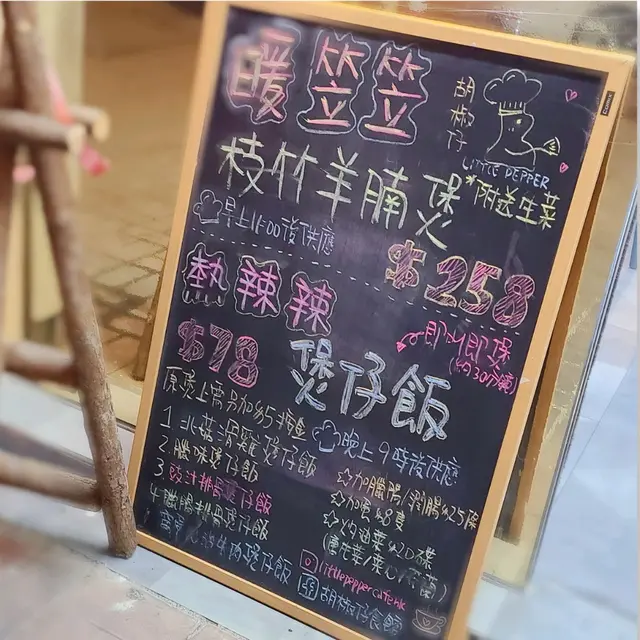 暖笠笠
胡椒仔
LITTLE PEPPER
枝竹羊腩煲
*附送生菜
早上11:00後供應
$258
熱辣辣
$78
即叫即煲
(約30分鐘)
煲仔飯
原煲上需另加$5按金
晚上9時後供應
1. 北菇滑雞煲仔飯
2. 臘味煲仔飯
3. 豉汁排骨煲仔飯
4. 臘腸排骨煲仔飯
牛肉煲仔飯
☆加臘腸/潤腸$25條
☆加蛋$8隻
☆灼油菜$20碟
littlepeppercafehk
胡椒仔食館